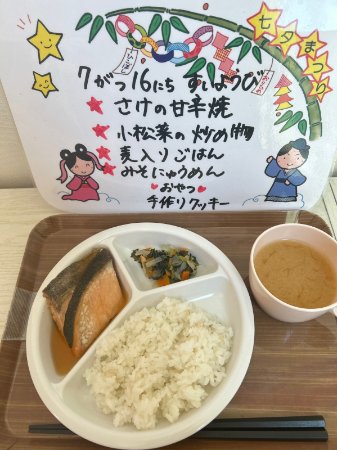 七夕まつり
7がつ16にち すいようび
★さけの甘辛焼
★小松菜の炒め物
★麦入りごはん
★みそにゅうめん
♥おやつ♥
手作りクッキー